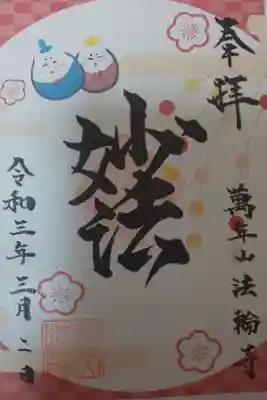 奉拝
妙法
萬年山法輪寺
令和三年三月二日